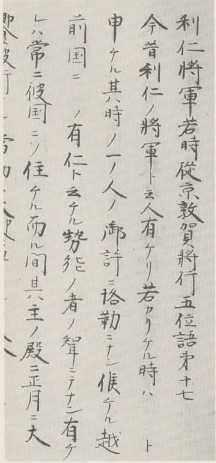 利仁將軍若時従京敦賀將行五位語第十七
今昔利仁ノ將軍ト云人有ケリ若カリケル時ハ　ト
申ケル其時ノ一ノ人ノ御許ニ恪勤ニナン候ケル越
前国ニ　ノ有仁ト云ケル勢徳ノ者ノ聟ニテナン有ケ
レハ常ニ彼国ニソ住ケル而ル間其主ノ殿ニ正月ニ大